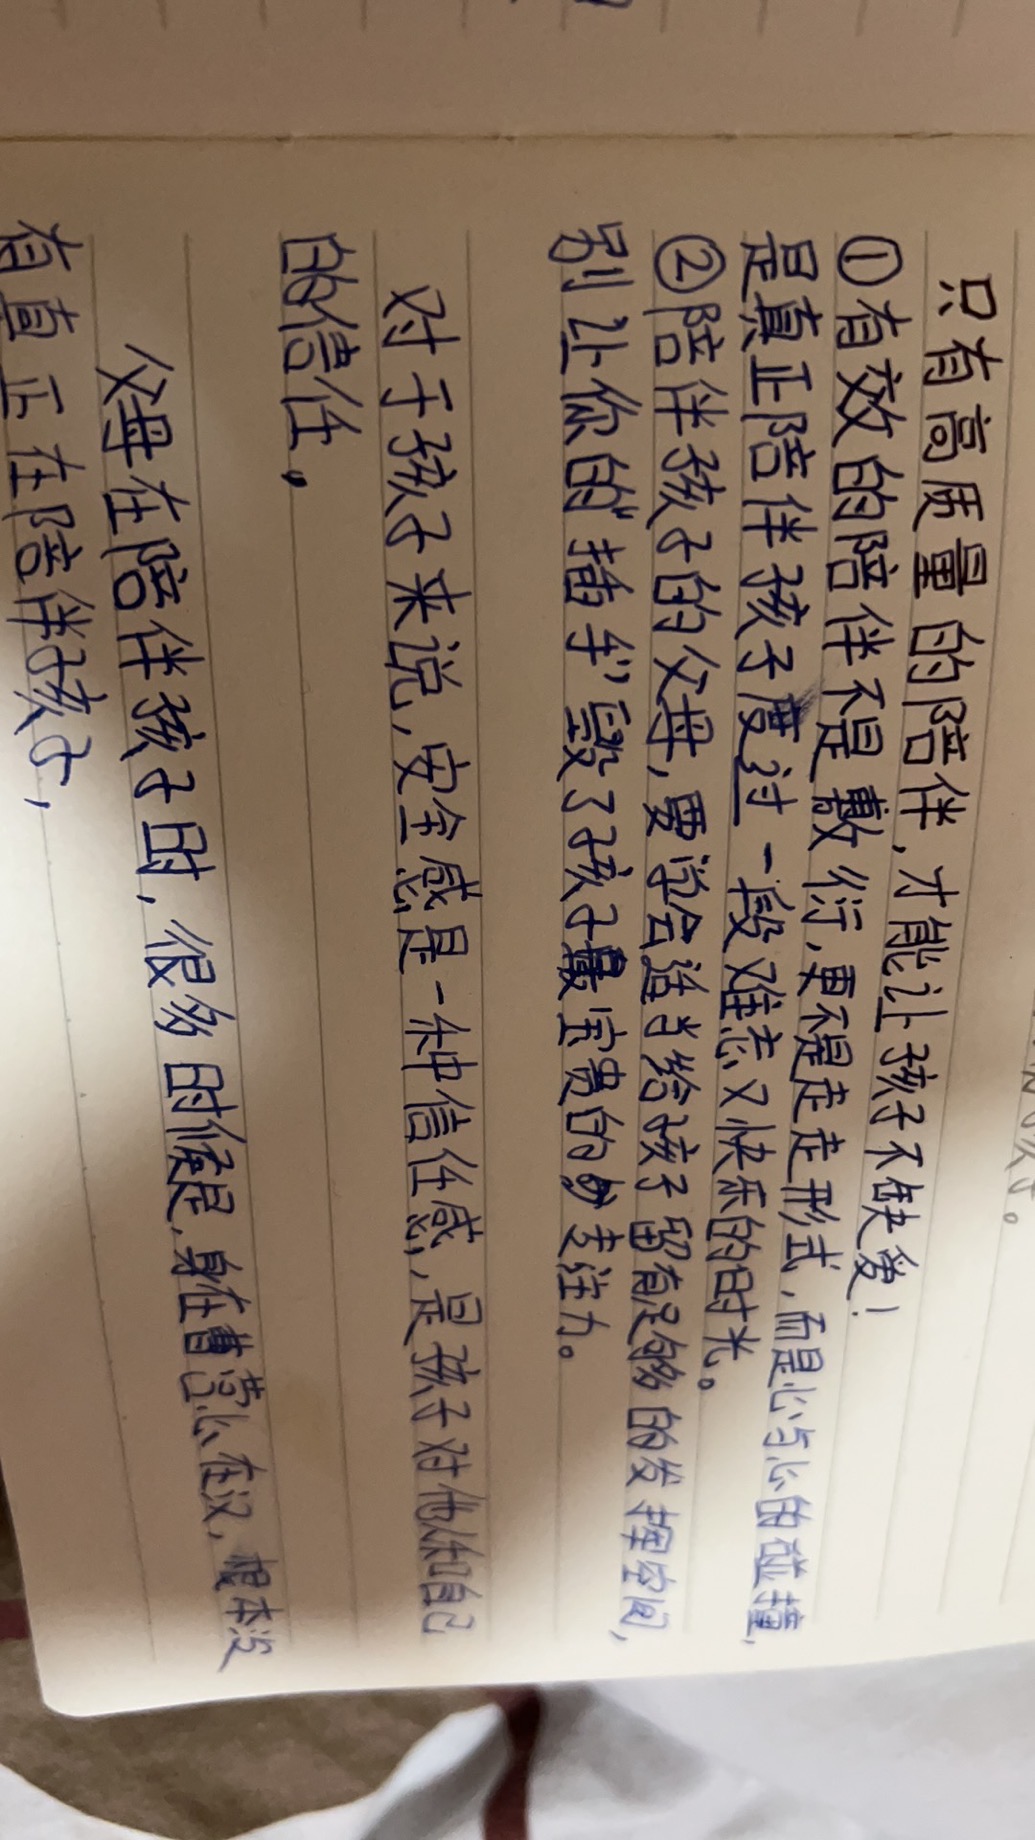 只有高质量的陪伴,才能让孩子不缺爱!
①有效的陪伴不是敷衍,更不是走走形式,而是心与心的碰撞,
是真正陪伴孩子度过一段难忘又快乐的时光。
②陪伴孩子的父母,要学会适当给孩子留有足够的发挥空间,
别让你的“插手”毁了孩子最宝贵的专注力。
对于孩子来说,安全感是一种信任感,是孩子对他人和自己
的信任,
父母在陪伴孩子时,很多时候是,身在曹营心在汉,根本没
有真正在陪伴孩子,